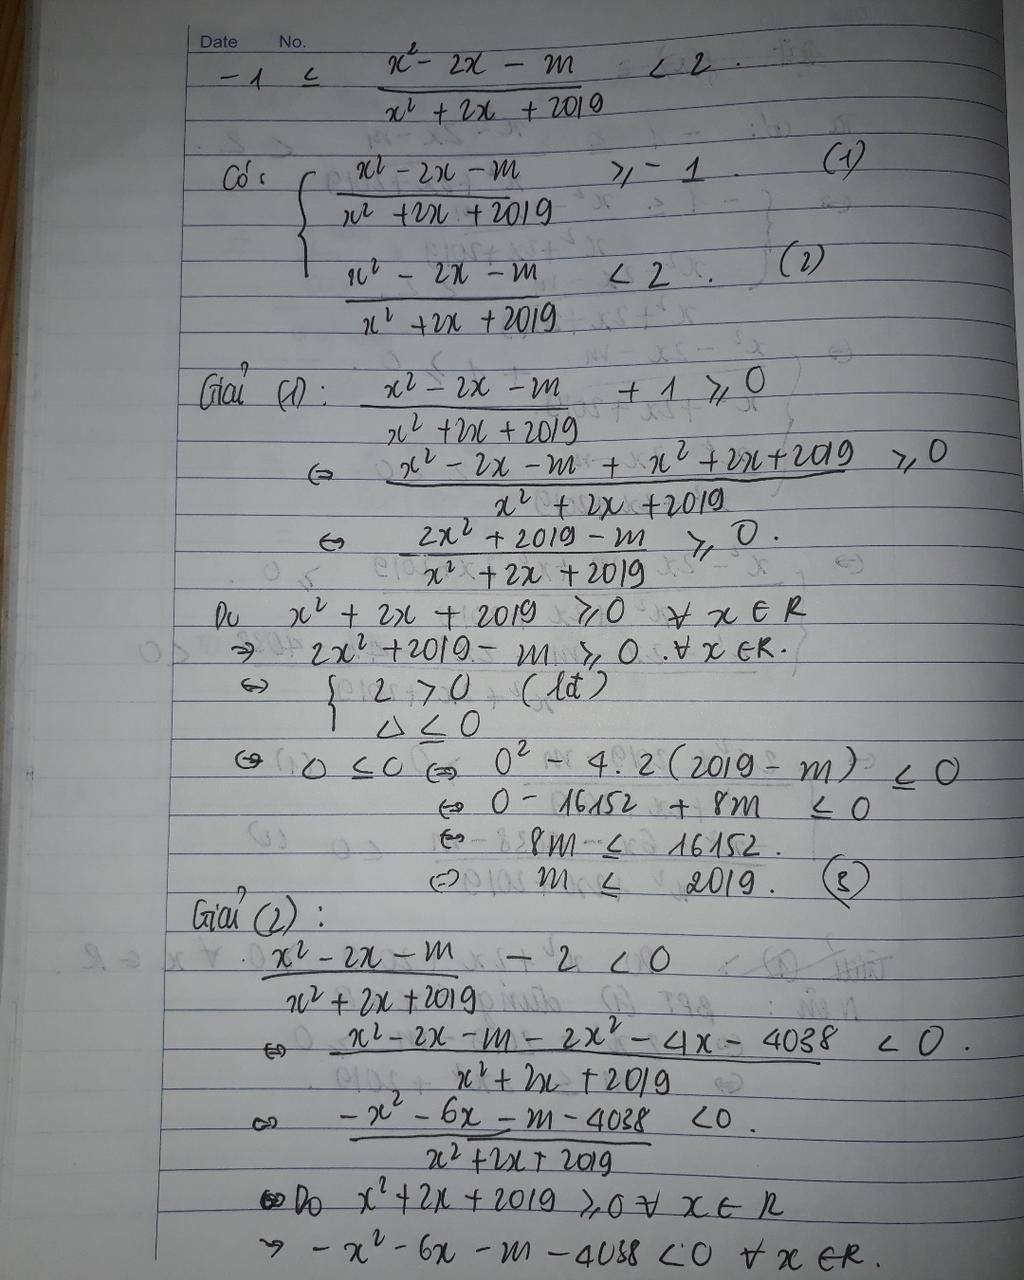 Date No.
-1 ≤ (x² - 2x - m)/(x² + 2x + 2019) < 2.
Có: { (x² - 2x - m)/(x² + 2x + 2019) ≥ -1. (1)
(x² - 2x - m)/(x² + 2x + 2019) < 2. (2)
Giải (1): (x² - 2x - m)/(x² + 2x + 2019) + 1 ≥ 0
⇔ (x² - 2x - m + x² + 2x + 2019)/(x² + 2x + 2019) ≥ 0
⇔ (2x² + 2019 - m)/(x² + 2x + 2019) ≥ 0.
Do x² + 2x + 2019 ≥ 0 ∀ x ∈ R
⇒ 2x² + 2019 - m ≥ 0. ∀ x ∈ R.
⇔ { 2 > 0 (lđ)
Δ ≤ 0
⇔ Δ ≤ 0 ⇔ 0² - 4.2(2019 - m) ≤ 0
⇔ 0 - 16152 + 8m ≤ 0
⇔ 8m ≤ 16152.
⇔ m ≤ 2019. (3)
Giải (2):
(x² - 2x - m)/(x² + 2x + 2019) - 2 < 0
⇔ (x² - 2x - m - 2x² - 4x - 4038)/(x² + 2x + 2019) < 0.
⇔ (-x² - 6x - m - 4038)/(x² + 2x + 2019) < 0.
⇔ Do x² + 2x + 2019 ≥ 0 ∀ x ∈ R
→ -x² - 6x - m - 4038 < 0 ∀ x ∈ R.